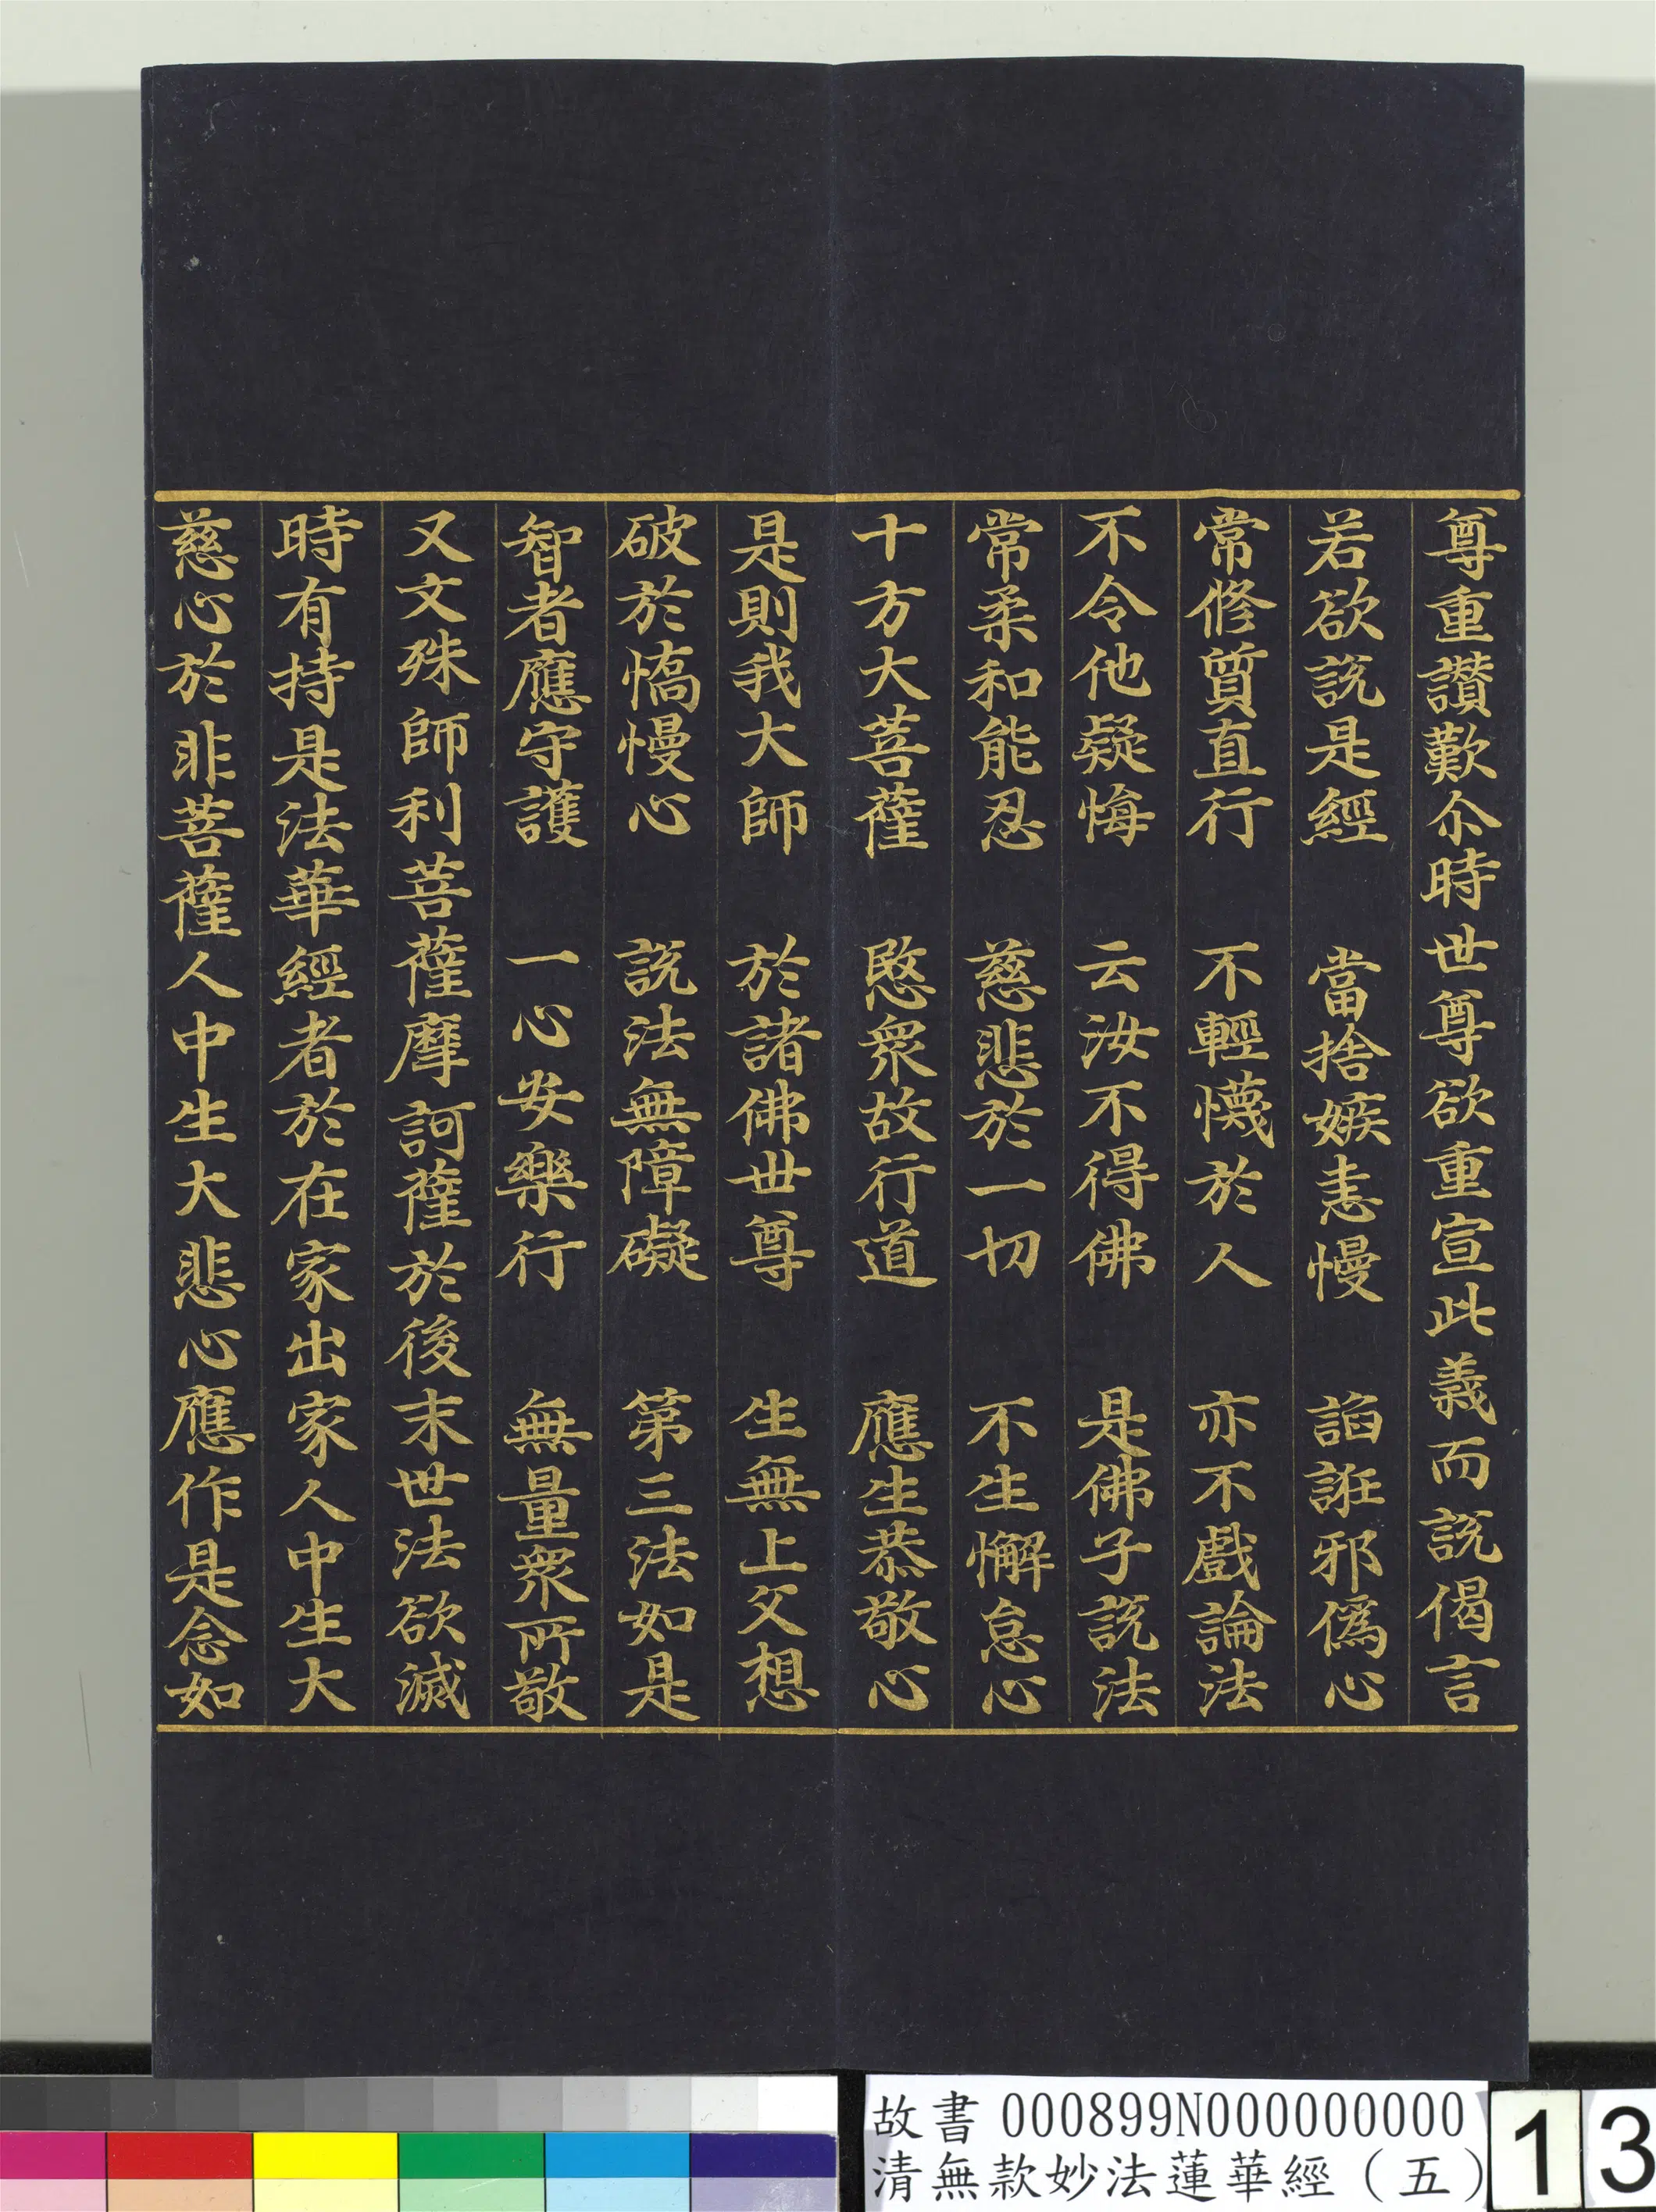 尊重讚歎尒時世尊欲重宣此義而說偈言
若欲說是經　當捨嫉恚慢　諂誑邪偽心
常修質直行　不輕懱於人　亦不戲論法
不令他疑悔　云汝不得佛　是佛子說法
常柔和能忍　慈悲於一切　不生懈怠心
十方大菩薩　愍衆故行道　應生恭敬心
是則我大師　於諸佛世尊　生無上父想
破於憍慢心　說法無障礙　第三法如是
智者應守護　一心安樂行　無量衆所敬
又文殊師利菩薩摩訶薩於後末世法欲滅
時有持是法華經者於在家出家人中生大
慈心於非菩薩人中生大悲心應作是念如
故書 000899N000000000
清無款妙法蓮華經（五）
13